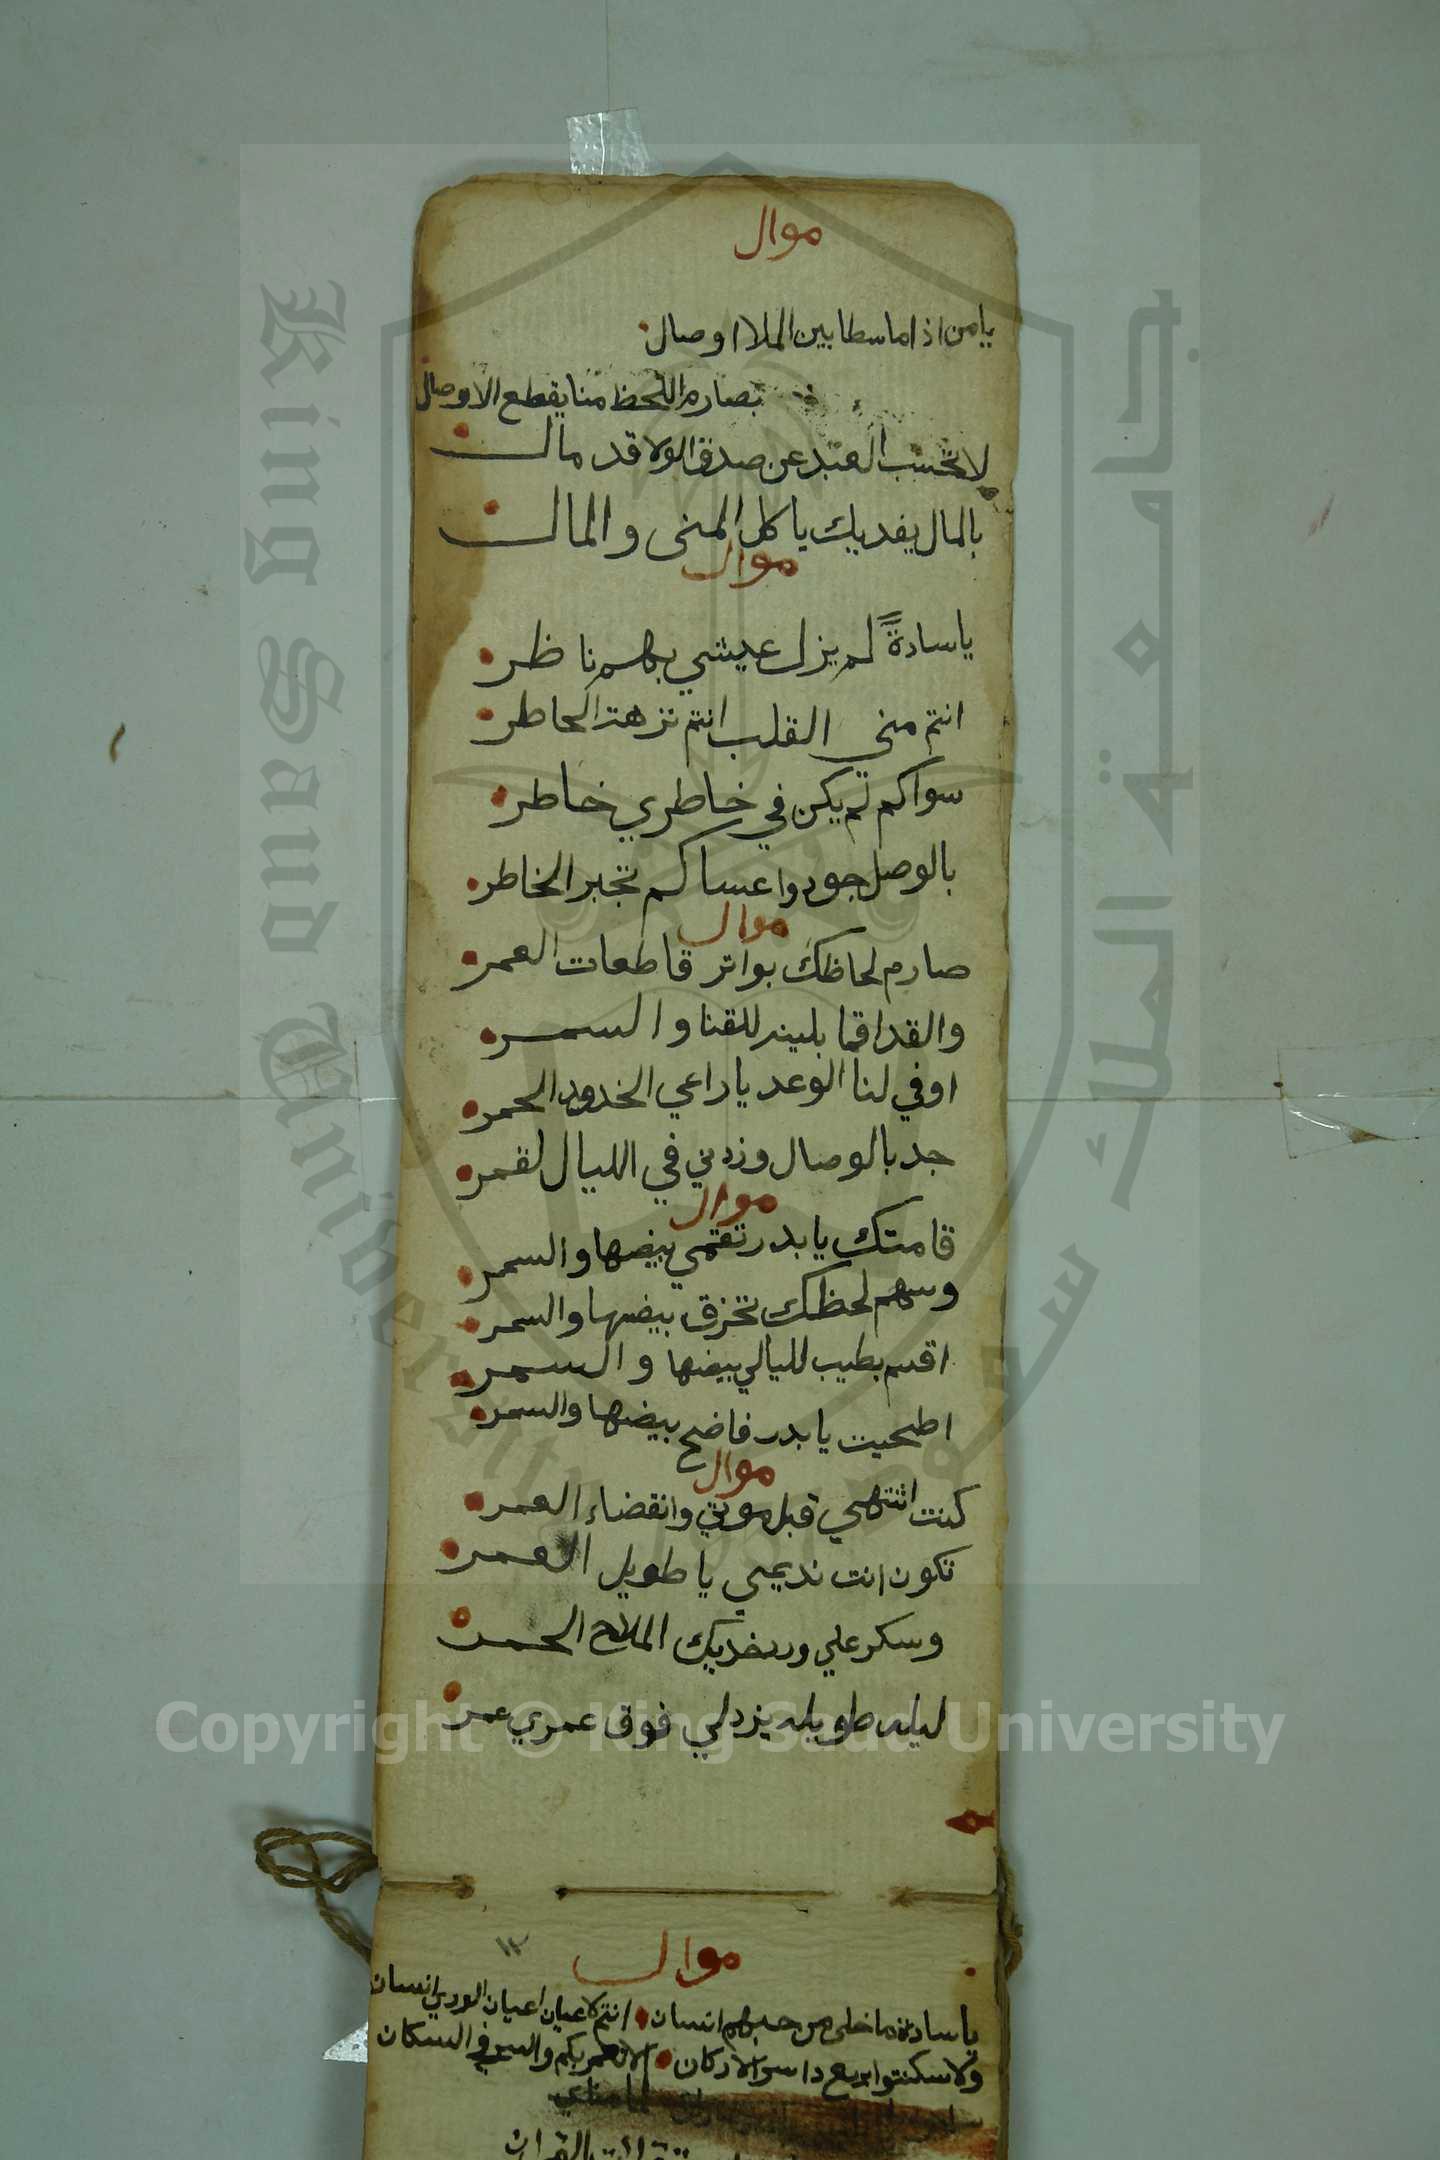 موال
يامن اذ اما سطا بين الملا اوصال
بصارم اللحظ منا يقطع الاوصال
لا تحسب العبد عن صدق الولا قد مال
بالمال يفديك يا كل المنى والمال
موال
يا سادةً لم يزل عيشي بهم ناظر
انتم منى القلب انتم نزهت الخاطر
سواكم لم يكن في خاطري خاطر
بالوصل جودوا عساكم تجبر الخاطر
موال
صارم لحاظك بواتر قاطعات العمر
والقد اقما بلينه للقنا والسمر
اوفي لنا الوعد يا راعي الخدود الحمر
جد بالوصال وزدني في الليال لقمر
موال
قامتك يا بدر تقمي بيضها والسمر
وسهم لحظك تخزق بيضها والسمر
اقسم بطيب لليالي بيضها والسمر
اطحيت يا بدر فاضح بيضها والسمر
موال
كنت اشتهي قبل موتي وانقضاء العمر
تكون انت نديمي يا طويل العمر
وسكر علي ورد خديك الملاح الحمر
ليله طويله يزدلي فوق عمري عمر
١٢
موال
يا سادة ما خلى من حبهم انسان انتم كاعيان اعيان الورى انسان
ولا سكنتوا بربع داسر الاركان الا تعمر بكم والسر في السكان
King Saud University
جامعة الملك سعود
1957
Copyright © King Saud University